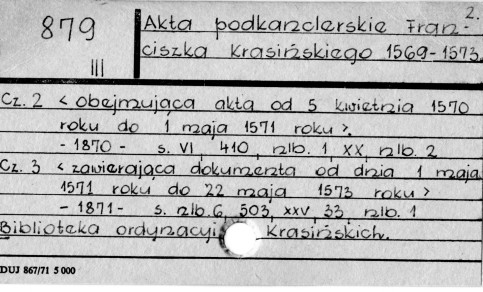 2.
879
III
Akta podkanclerskie Fran-
ciszka Krasińskiego 1569-1573.
Cz. 2 < obejmująca akta od 5 kwietnia 1570
roku do 1 maja 1571 roku >.
- 1870 - s. VI, 410, nlb. 1, XX, nlb. 2
Cz. 3 < zawierająca dokumenta od dnia 1 maja
1571 roku do 22 maja 1573 roku >
- 1871 - s. nlb. 6, 503, XXV, 33, nlb. 1
Biblioteka ordynacyi Krasińskich.
DUJ 867/71 5 000